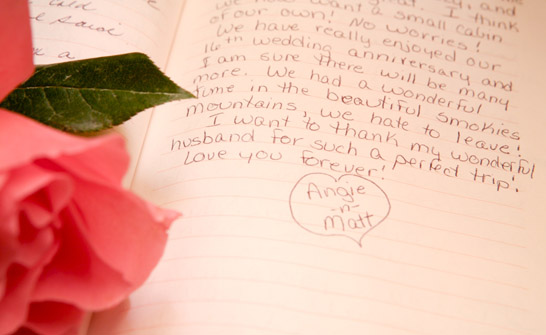 old
e said
k a
and
want a small cabin
of our own! No worries!
We have really enjoyed our
16th wedding anniversary and
I am sure there will be many
more. We had a wonderful
time in the beautiful smokies
mountains, we hate to leave!
I want to thank my wonderful
husband for such a perfect trip!
Love you forever!
Angie
-n-
Matt